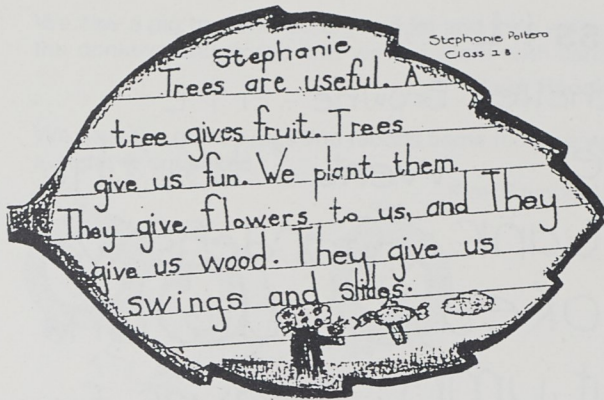 Stephanie
Stephanie Poltera
Class 2B.
Trees are useful. A
tree gives fruit. Trees
give us fun. We plant them.
They give flowers to us, and They
give us wood. They give us
swings and slides.